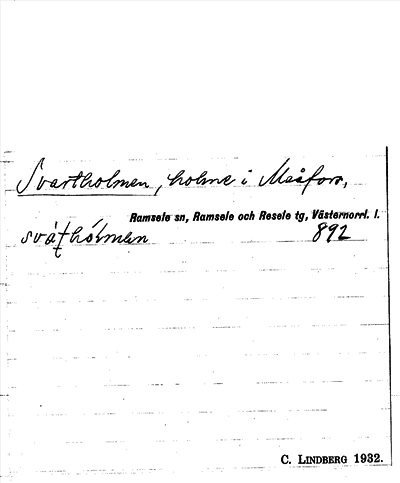 Svartholmen, holme i Meåfors,
Ramsele sn, Ramsele och Resele tg, Västernorrl. l.
892
C. LINDBERG 1932.